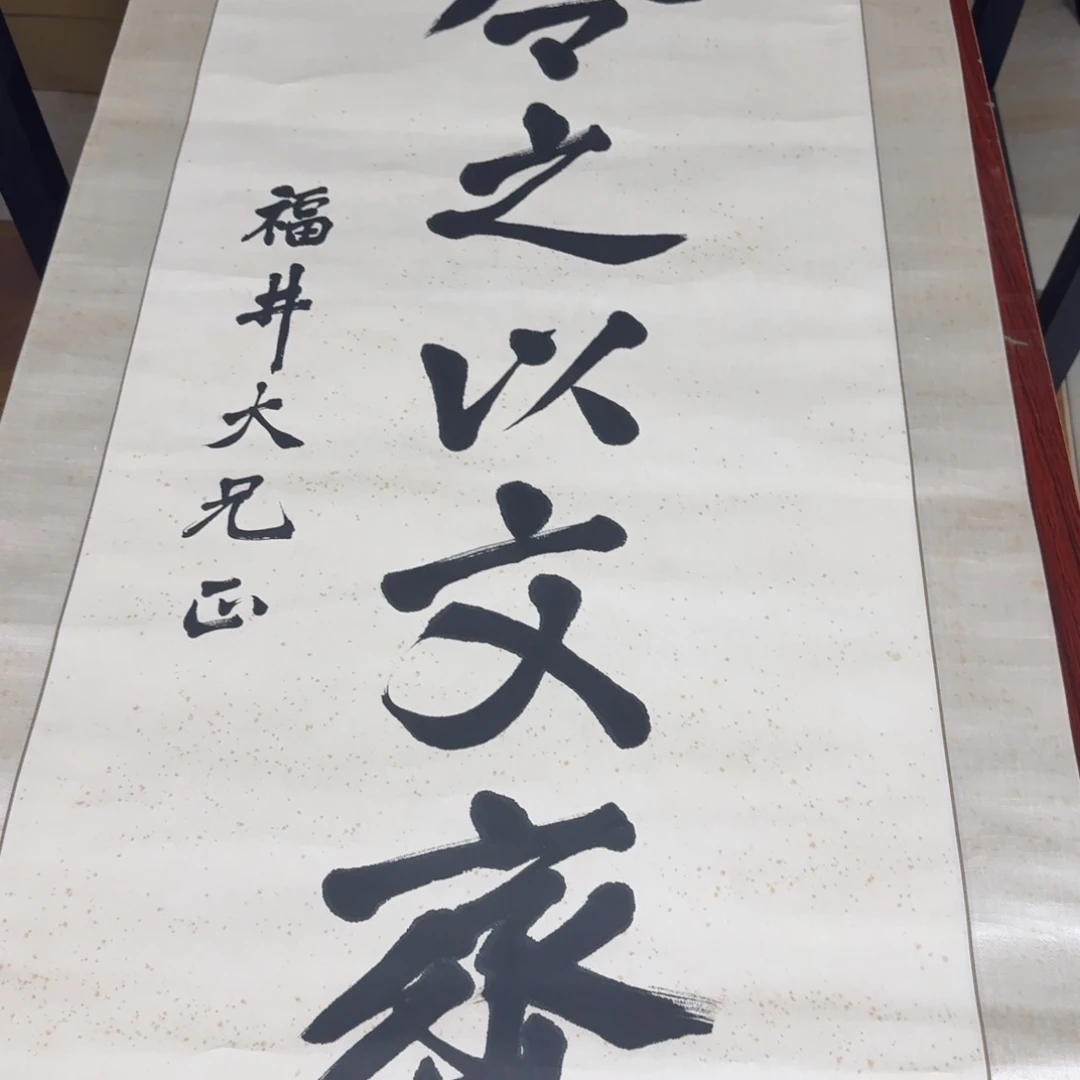 令之以文齊
福井大兄正